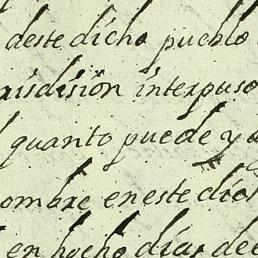 deste dicho pueblo
risdision interpuso
quanto puede y
ombre en este dich
en hocho dias de